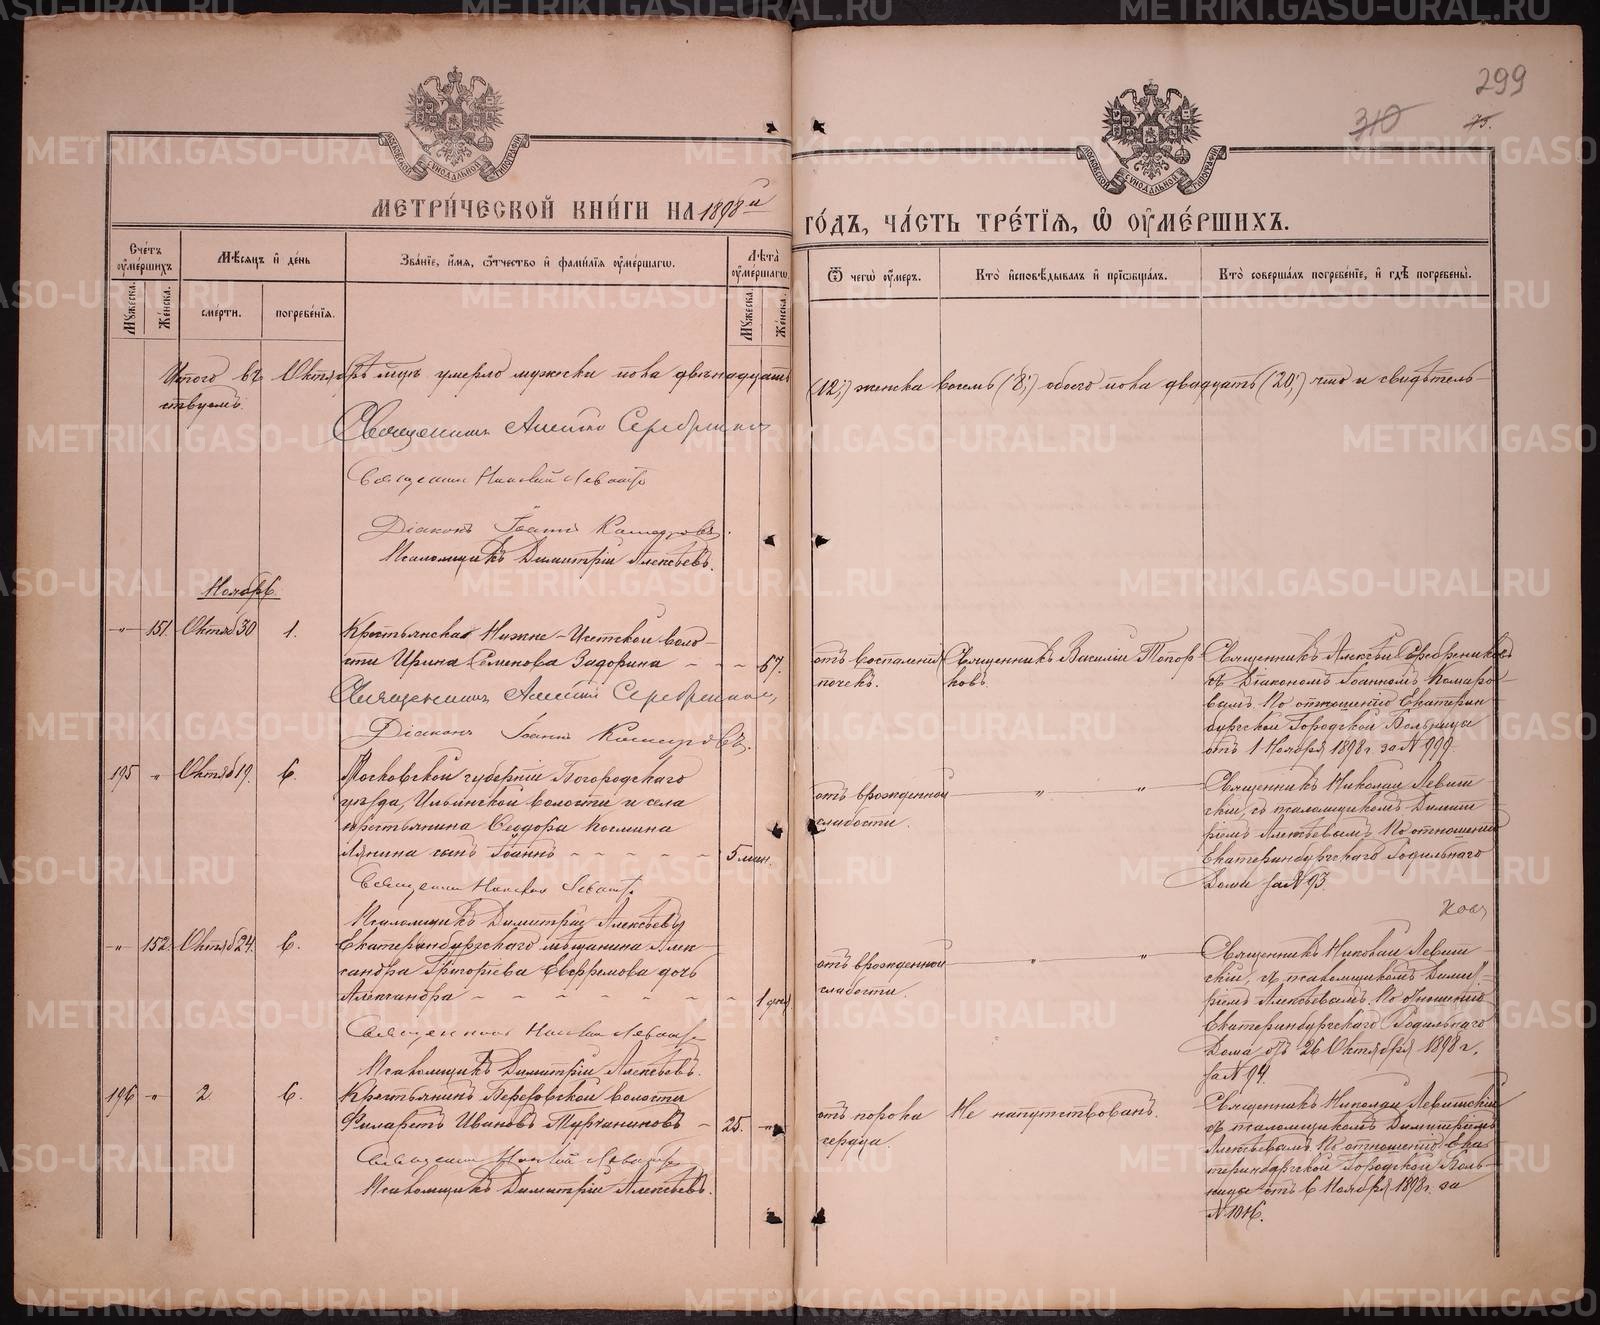 299
310
75.
МОСКОВСКОЙ СѴНОДАЛЬНОЙ ТИПОГРАФІИ
МОСКОВСКОЙ СѴНОДАЛЬНОЙ ТИПОГРАФІИ
МЕТРИ́ЧЕСКОЙ КНИ́ГИ НА 1898й ГО́ДЪ, ЧА́СТЬ ТРЕ́ТІѦ, Ѽ ОУ҆МЕ́РШИХЪ.
Сче́тъ оу҆ме́ршихъ
Мѣсѧцъ и҆ де́нь
Зва́нїе, и҆́мѧ, ѻ҆́тчество и҆ фами́лїѧ оу҆ме́ршагѡ.
Лѣта̀ оу҆ме́ршагѡ.
Ѿ чегѡ̀ оу҆́меръ.
Кто̀ и҆сповѣ́дывалъ и҆ прїѡбща́лъ.
Кто̀ соверша́лъ погребе́нїе, и҆ гдѣ̀ погребены̀.
Мꙋ́жеска. Же́нска.
сме́рти.
погребе́нїѧ.
Мꙋ́жеска. Же́нска.
Итого въ Октябрѣ м-цѣ умерло мужеска пола двѣнадцать (12;) женска восемь (8;) обоего пола двадцать (20;) что и свидѣтель-
ствуемъ.
Священникъ Алексій Серебренико
Священникъ Николай Левитс
Діаконъ Іоаннъ Комаровъ.
Псаломщикъ Димитрій Алексѣевъ.
Ноябрь.
-"- 151. Октяб 30 1.
Крестьянская Нижне-Исетской воло-
сти Ирина Семенова Задорина - - - 57.
Священникъ Алексій Серебренико
Діаконъ Іоаннъ Комаровъ.
отъ воспаленія
почекъ.
Священникъ Василій Топор
ковъ.
Священникъ Алексѣй Серебрениковъ
съ Діакономъ Іоанномъ Комаро-
вымъ. По отношенію Екатерин
бургской Городской Больницы
отъ 1 Ноября 1898 г. за № 999.
195 " Октяб 19. 6.
Московской губерніи Богородскаго
уѣзда, Ильинской волости и села
крестьянина Ѳеодора Космина
Лянина сынъ Іоаннъ - - - - - 5 мин.
Священникъ Николай Левитс
Псаломщикъ Димитрій Алексѣевъ
отъ врожденной
слабости.
" "
Священникъ Николай Левит-
скій, съ псаломщикомъ Димит
ріемъ Алексѣевымъ. По отношенію
Екатеринбургскаго Родильнаго
Дома за № 93.
-"- 152. Октяб 24. 6.
Екатеринбургскаго мѣщанина Алек
сандра Григоріева Евфремова дочь
Александра - - - - - - - 1 дня
Священникъ Николай Левитс
Псаломщикъ Димитрій Алексѣевъ.
отъ врожденной
слабости.
" "
Священникъ Николай Левит-
скій, съ псаломщикомъ Димит-
ріемъ Алексѣевымъ. По отношенію
Екатеринбургскаго Родильнаго
Дома отъ 26 Октября 1898 г.
за № 94.
196 -"- 2 6.
Крестьянинъ Березовской волости
Филаретъ Ивановъ Турчаниновъ - 25. -"-
Священникъ Николай Левитс
Псаломщикъ Димитрій Алексѣевъ.
отъ порока
сердца.
Не напутствованъ.
Священникъ Николай Левитскій
съ псаломщикомъ Димитріемъ
Алексѣевымъ. По отношенію Ека-
теринбургской Городской Боль-
ницы отъ 6 Ноября 1898 г. за
№ 1016.
METRIKI.GASO-URAL.RU